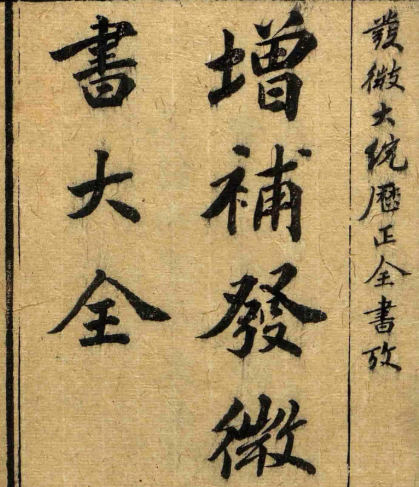 發微大統厯正全書攷
增補發微
書大全